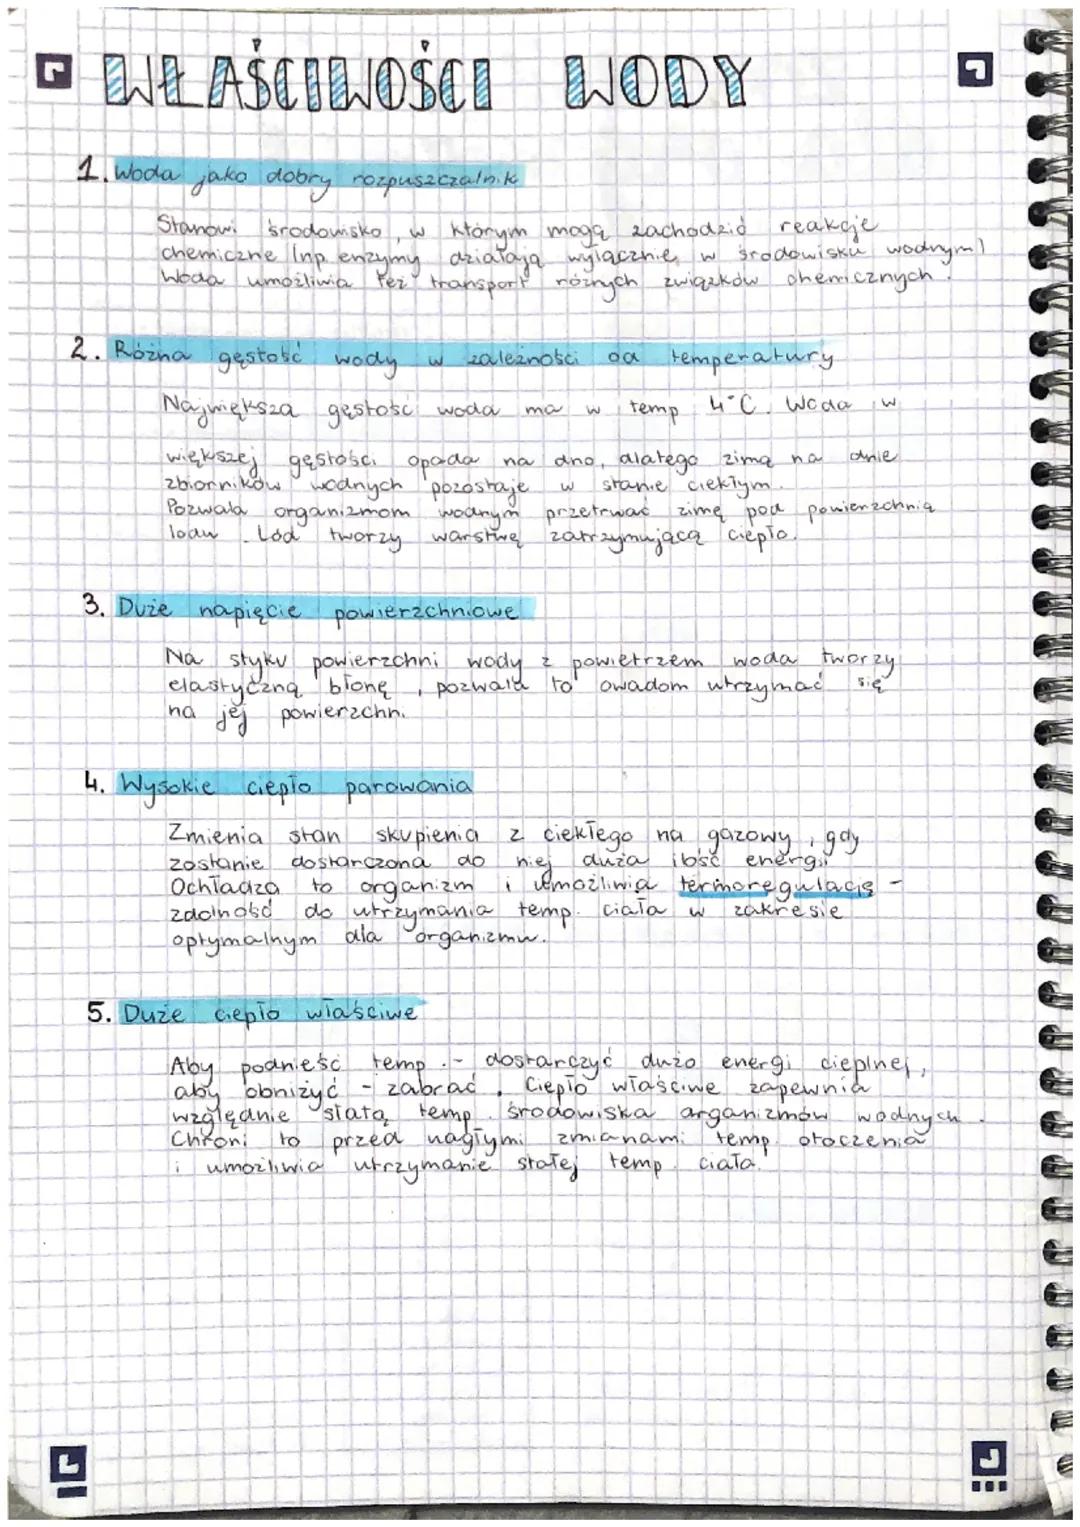 WŁAŚCIWOŚCI WODY
1. Woda jako dobry rozpuszczalnik
Stanowi środowisko, w którym mogą zachodzić reakcje
chemiczne (np. enzymy działają wyłącznie w środowisku wodnym)
Woda umożliwia też transport różnych związków chemicznych.
2. Różna gęstość wody w zależności od temperatury
Największa gęstość woda ma w temp 4°C. Woda w
większej gęstości opada na dno, dlatego zimą na dnie
zbiorników wodnych pozostaje w stanie ciekłym.
Pozwala organizmom wodnym przetrwać zimę pod powierzchnią
lodu. Lód tworzy warstwę zatrzymującą ciepło.
3. Duże napięcie powierzchniowe
Na styku powierzchni wody z powietrzem woda tworzy
elastyczną błonę, pozwala to owadom utrzymać się
na jej powierzchni
4. Wysokie ciepło parowania
Zmienia stan skupienia z ciekłego na gazowy, gdy
zostanie dostarczona do niej duża ilość energii
Ochładza to organizm i umożliwia termoregulację -
zdolność do utrzymania temp. ciała w zakresie
optymalnym dla organizmu.
5. Duże ciepło właściwe
Aby podnieść temp. - dostarczyć dużo energi cieplnej,
aby obniżyć - zabrać. Ciepło właściwe zapewnia
względnie stałą temp. środowiska organizmów wodnych.
Chroni to przed nagłymi zmianami temp. otoczenia
i umożliwia utrzymanie stałej temp. ciała.